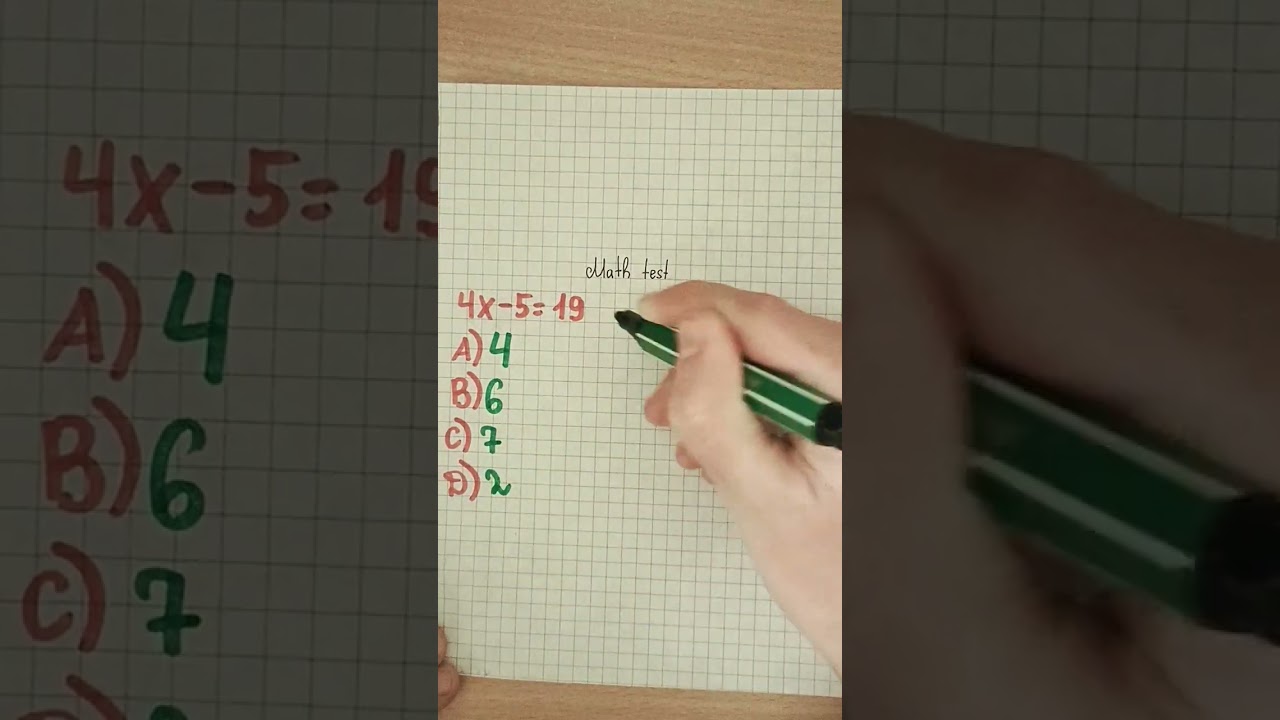 Math test
4x-5=19
A) 4
B) 6
C) 7
D) 2